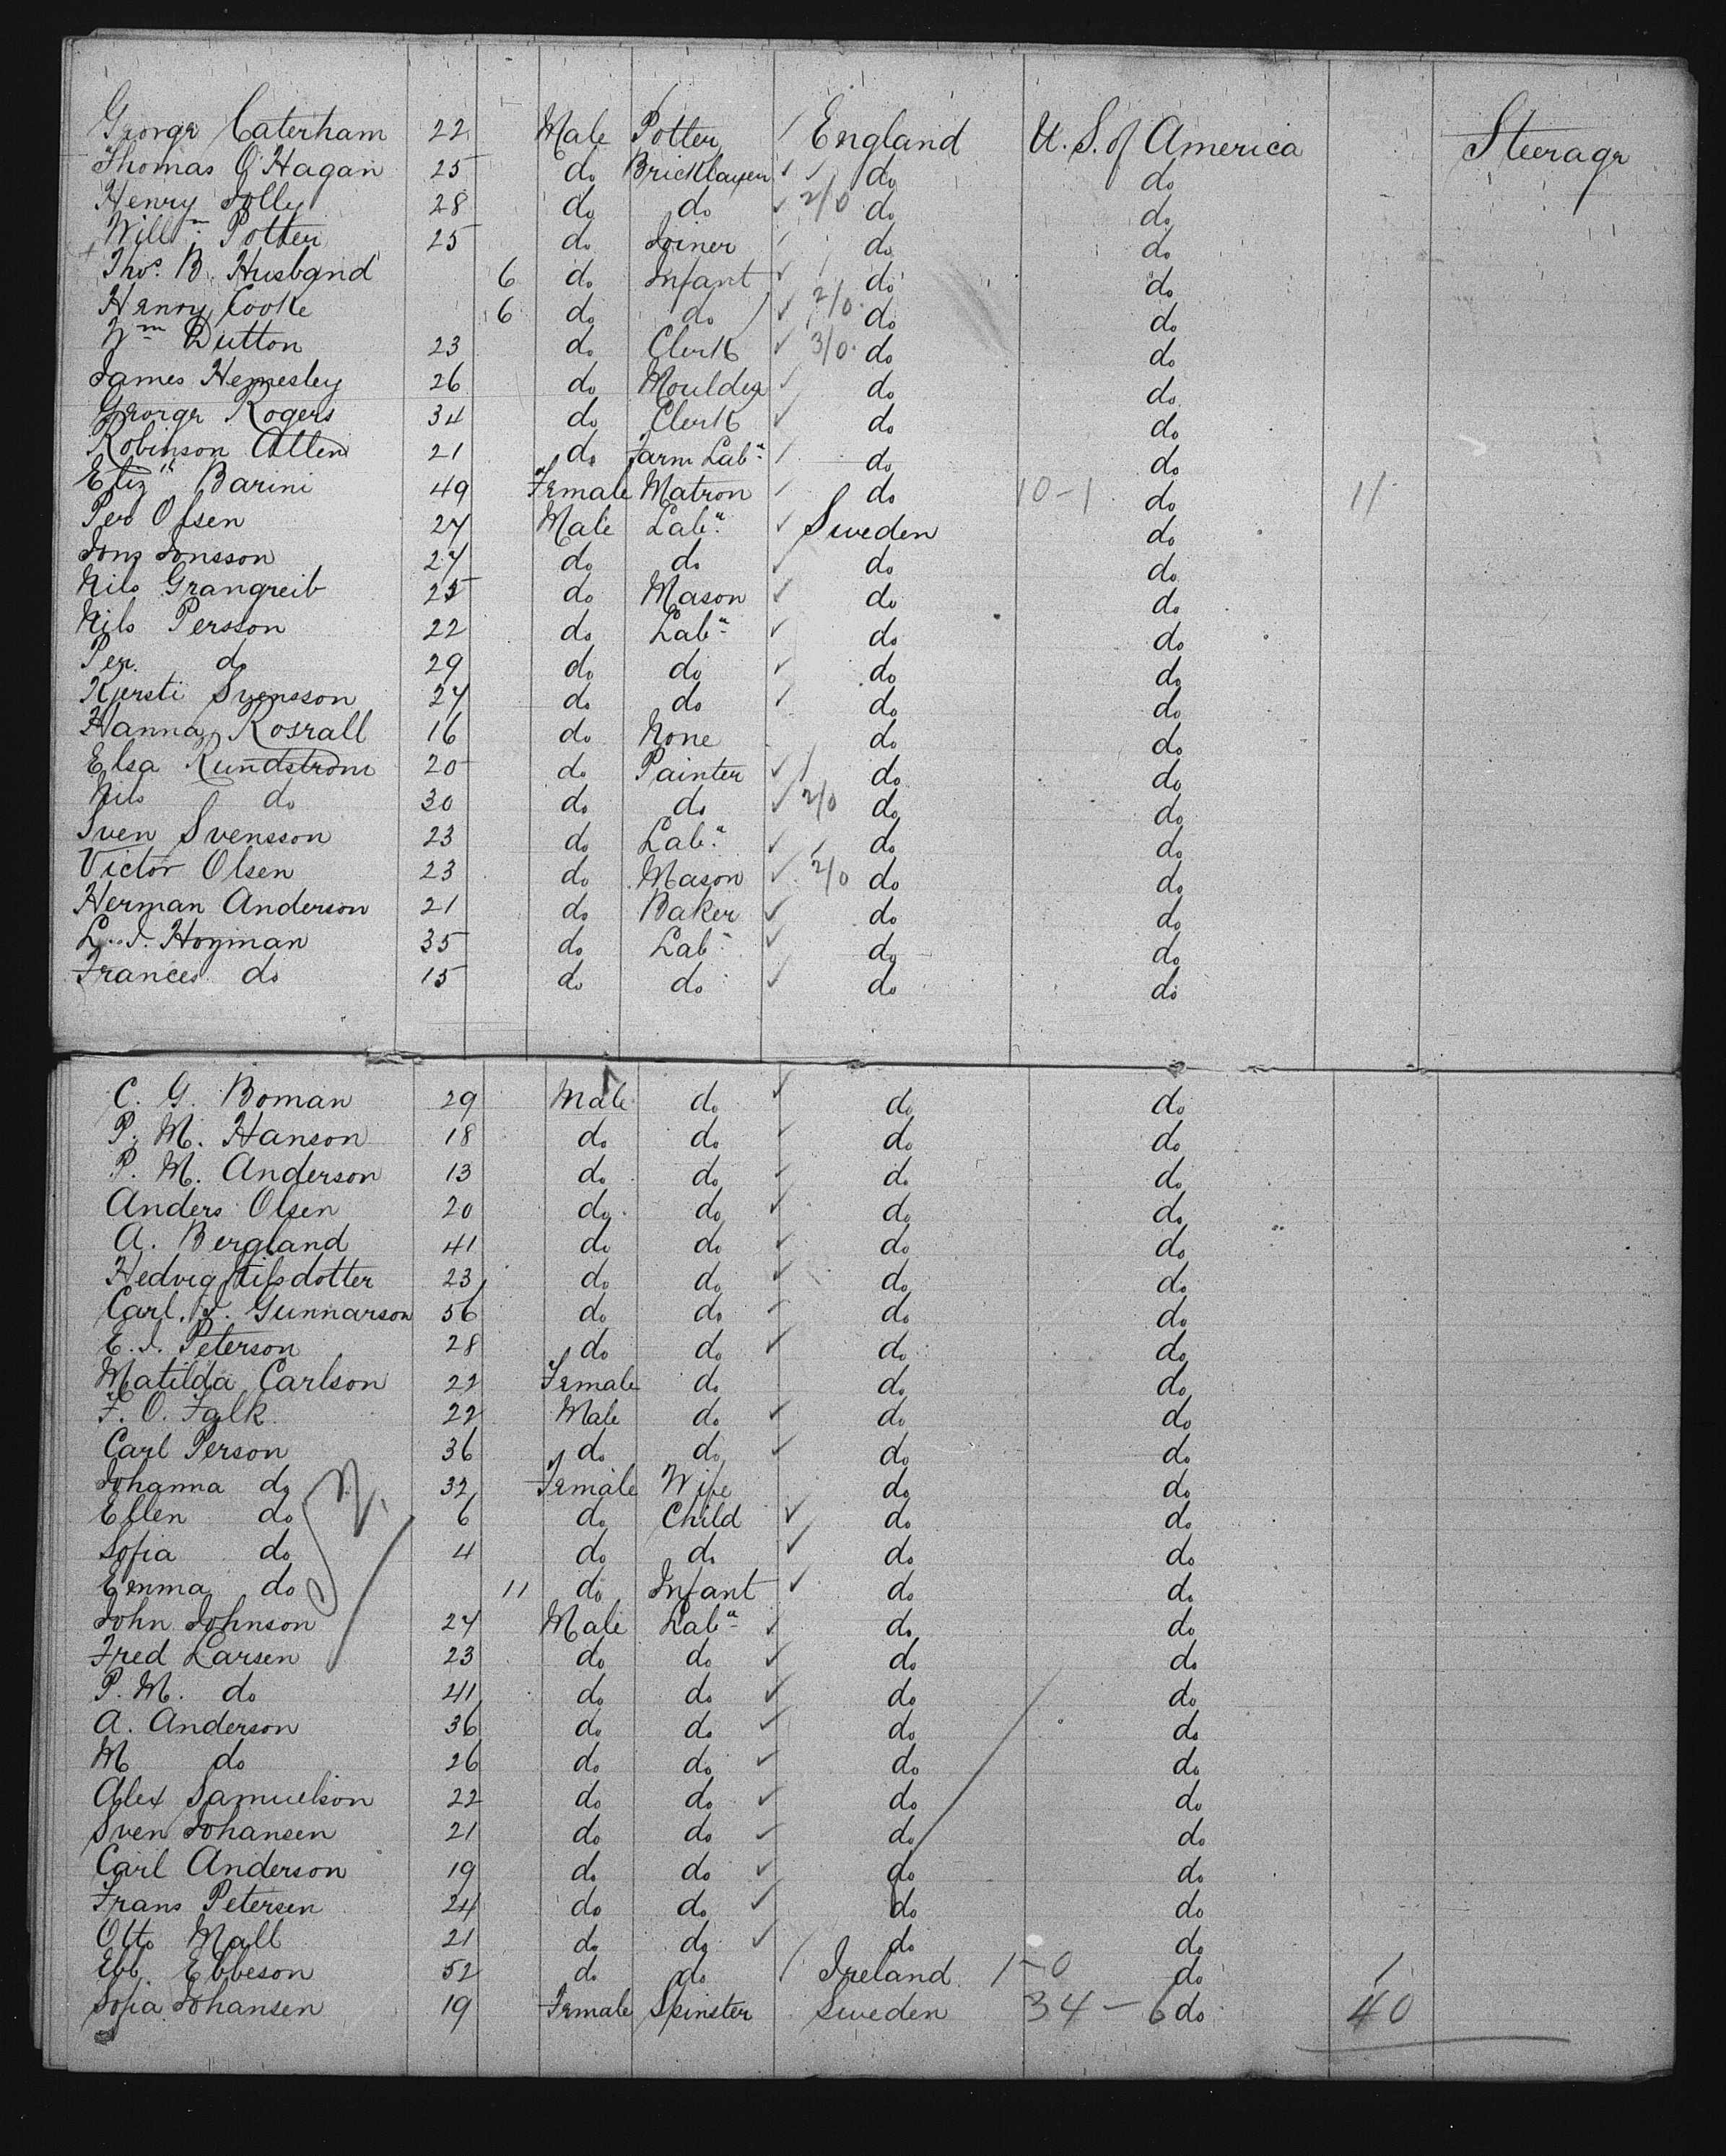 George Caterham 22 Male Potter England U. S. of America Steerage
Thomas O'Hagan 25 do Bricklayer do do
Henry Jolly 28 do do 2/0 do do
Willm Potter 25 do Joiner do do
Thos. B. Husband 6 do Infant do do
Henry Cooke 6 do do 2/0 do do
Wm Dutton 23 do Clerk 3/0 do do
James Hemesley 26 do Moulder do do
George Rogers 34 do Clerk do do
Robinson Allen 21 do Farm Labr do do
Elizth Barini 49 Female Matron do 10-1 do 11
Per Olsen 27 Male Labr Sweden do
Jons Jonsson 27 do do do do
Nils Grangreib 25 do Mason do do
Nils Persson 22 do Labr do do
Per do 29 do do do do
Kjersti Svensson 27 do do do do
Hanna Rosrall 16 do None do do
Elsa Rundstrom 20 do Painter do do
Nils do 30 do do 2/0 do do
Sven Svensson 23 do Labr do do
Victor Olsen 23 do Mason 2/0 do do
Herman Anderson 21 do Baker do do
L. J. Hoyman 35 do Labr do do
Frances do 15 do do do do
C. G. Boman 29 Male do do do
P. M. Hanson 18 do do do do
P. M. Anderson 13 do do do do
Anders Olsen 20 do do do do
A. Bergland 41 do do do do
Hedvig Nilsdotter 23 do do do do
Carl. F. Gunnarson 56 do do do do
E. J. Peterson 28 do do do do
Matilda Carlson 22 Female do do do
F. O. Falk 22 Male do do do
Carl Person 36 do do do do
Johanna do 32 Female Wife do do
Ellen do 6 do Child do do
Sofia do 4 do do do do
Emma do 11 do Infant do do
John Johnson 27 Male Labr do do
Fred Larsen 23 do do do do
P. M. do 41 do do do do
A. Anderson 36 do do do do
M do 26 do do do do
Alex Samuelson 22 do do do do
Sven Johansen 21 do do do do
Carl Anderson 19 do do do do
Frans Petersen 24 do do do do
Otto Mall 21 do do do do
Ebb. Ebbeson 52 do do Ireland 1-0 do 1
Sofia Johansen 19 Female Spinster Sweden 34-6 do 40